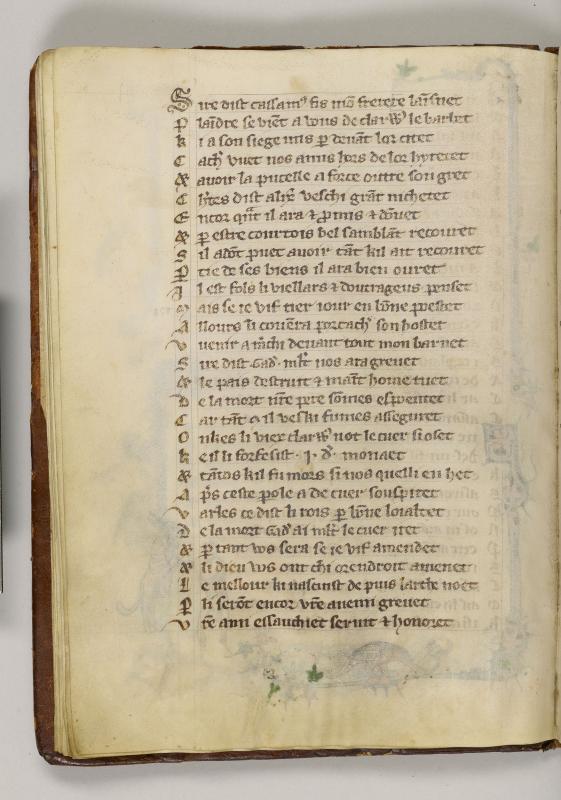 S ire dist cassam⁹ fis mō frerere
P laīdre se viēt a vous de clarꝰ le barbet
k i a son siege mis ꝑ deuāt lor citet
C achr̄ vuet nos amis hors de lor hyretet
& auoir la pucelle a force outre son gret
C dist alix̄ veschi grāt nichetet
E ncor q̄ il ara & ꝓmis & dōnet
& ꝑ estre courtois bel samblāt recouret
S il adōt puet auoir tāt kil ait recouret
P tie de ses biens il ara bien ouret
I l est fols li viellars & doutrageus penset
M ais se ie vif tier iour en bōne
A llours li couēra son hostel
V uenir a devant tout mon barnet
S ire dist Gad. nos ara greuet
& le pais destruit & maīt home tuet
D e la mort nr̄e pere sōmes
C ar tāt 9 il veski fumes asseguret
O nkes li viex clarꝰ not le cuer si oset
k e il li forfesist . j . d . monaet
& tātos kil fu mors si nos quelli en het
A pͥs ceste ꝑole a de cuer souspiret
V arles ce dist li rois ꝑ bōne loialtet
D e la mort Gad ai le cuer iret
& ꝑ tant vos sera se ie vif amendet
& li dieu vos ont chi orendroit amenet
L e mellour ki nascuist de puis larche noet
P li serōt encor vr̄e anemi greuet
V r̄e ami essauchiet seruit & honoret